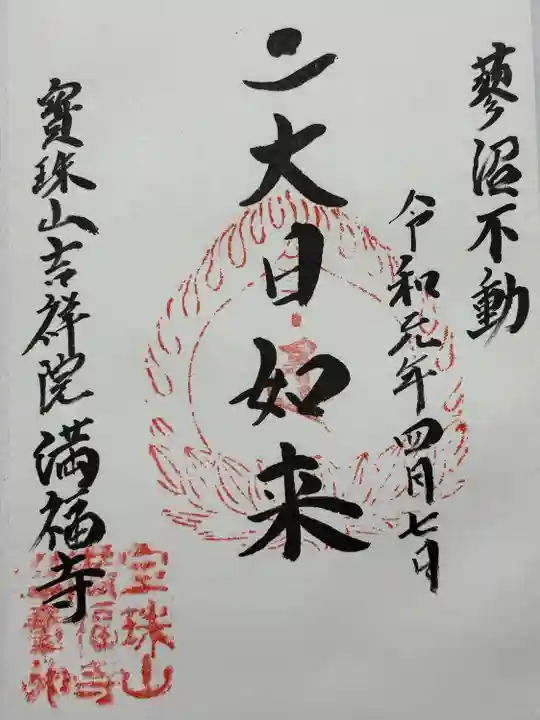 蓼沼不動
令和元年四月七日
二大日如来
寳珠山吉祥院満福寺
宝珠山